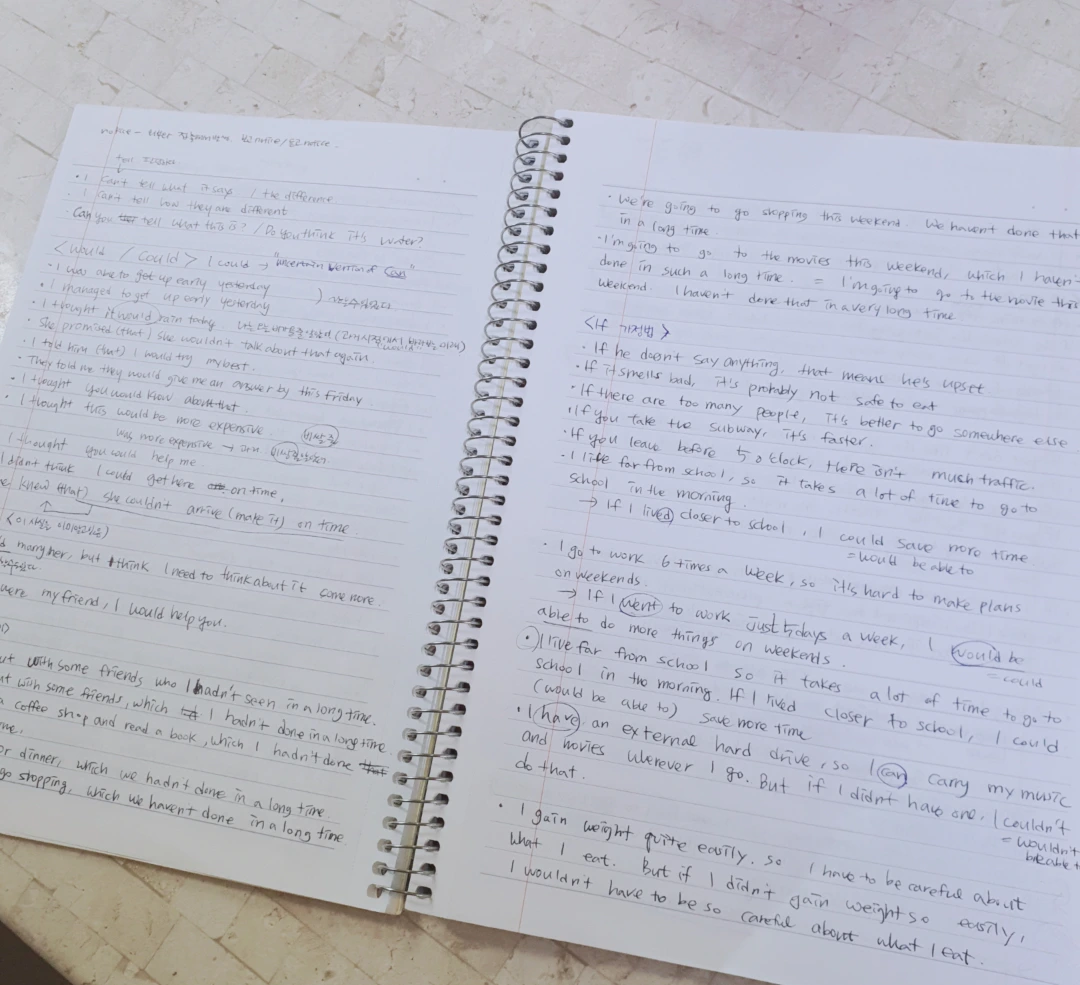 tell
• I can't tell what it says / the difference
I can't tell how they are different
Can you tell what this is? / Do you think it's water?
<would / could> I could → "uncertain version of can"
• I was able to get up early yesterday
• I managed to get up early yesterday
• I thought it would rain today
• She promised (that) she wouldn't talk about that again.
• I told him (that) I would try my best.
• They told me they would give me an answer by this Friday
• I thought you would know about that.
• I thought this would be more expensive
was more expensive →
I thought you would help me.
I didn't think I could get here on time,
knew (that) she couldn't arrive (make it) on time
marry her, but I think I need to think about it some more.
were my friend, I would help you.
with some friends who I hadn't seen in a long time.
with some friends, which I hadn't done in a long time.
coffee shop and read a book, which I hadn't done that
dinner, which we hadn't done in a long time.
go shopping, which we haven't done in a long time
• We're going to go shopping this weekend. We haven't done that
in a long time.
• I'm going to go to the movies this weekend, which I haven'
done in such a long time. = I'm going to go to the movie this
weekend. I haven't done that in a very long time
<If 가정법>
• If he doesn't say anything, that means he's upset
• If it smells bad, it's probably not safe to eat
• If there are too many people, it's better to go somewhere else
• If you take the subway, it's faster.
• If you leave before 5 o'clock, there isn't much traffic.
• I live far from school, so it takes a lot of time to go to
school in the morning.
→ If I lived closer to school, I could save more time
= would be able to
• I go to work 6 times a week, so it's hard to make plans
on weekends.
→ If I went to work just 5 days a week, I would be
= could
able to do more things on weekends.
• I live far from school so it takes a lot of time to go to
school in the morning. If I lived closer to school, I could
(would be able to) save more time
• I have an external hard drive, so I can carry my music
and movies wherever I go. But if I didn't have one, I couldn't
= wouldn't be able t
do that.
• I gain weight quite easily. so I have to be careful about
what I eat. But if I didn't gain weight so easily,
I wouldn't have to be so careful about what I eat.